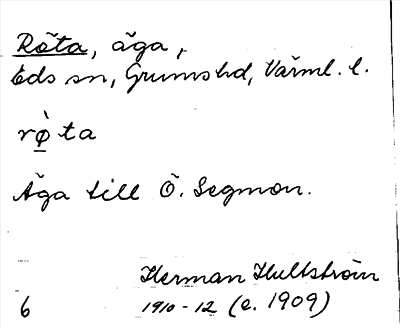 Röta, äga,
Eds sn, Grums hd, Värml. l.
rø̀ta
Äga till Ö. Segmon.
Herman Hultström
1910-12 (e. 1909)
6